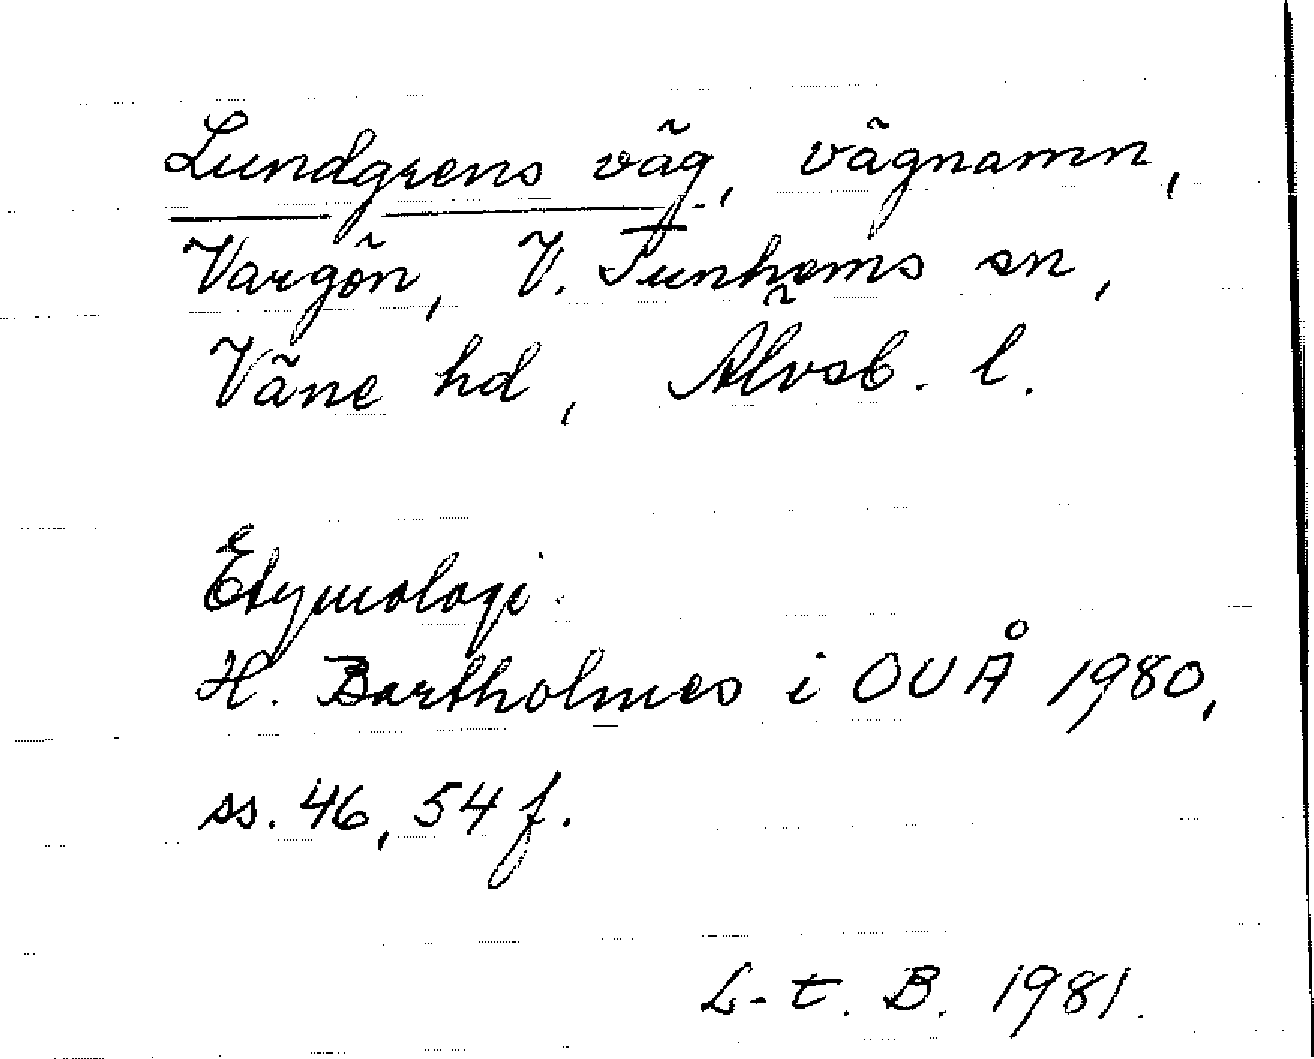 Lundgrens väg, vägnamn,
Vargön, V. Tunhems sn,
Väne hd, Älvsb. l.
Etymologi.
H. Bartholmes i OUÅ 1980,
ss. 46, 54 f.
L-t. B. 1981.